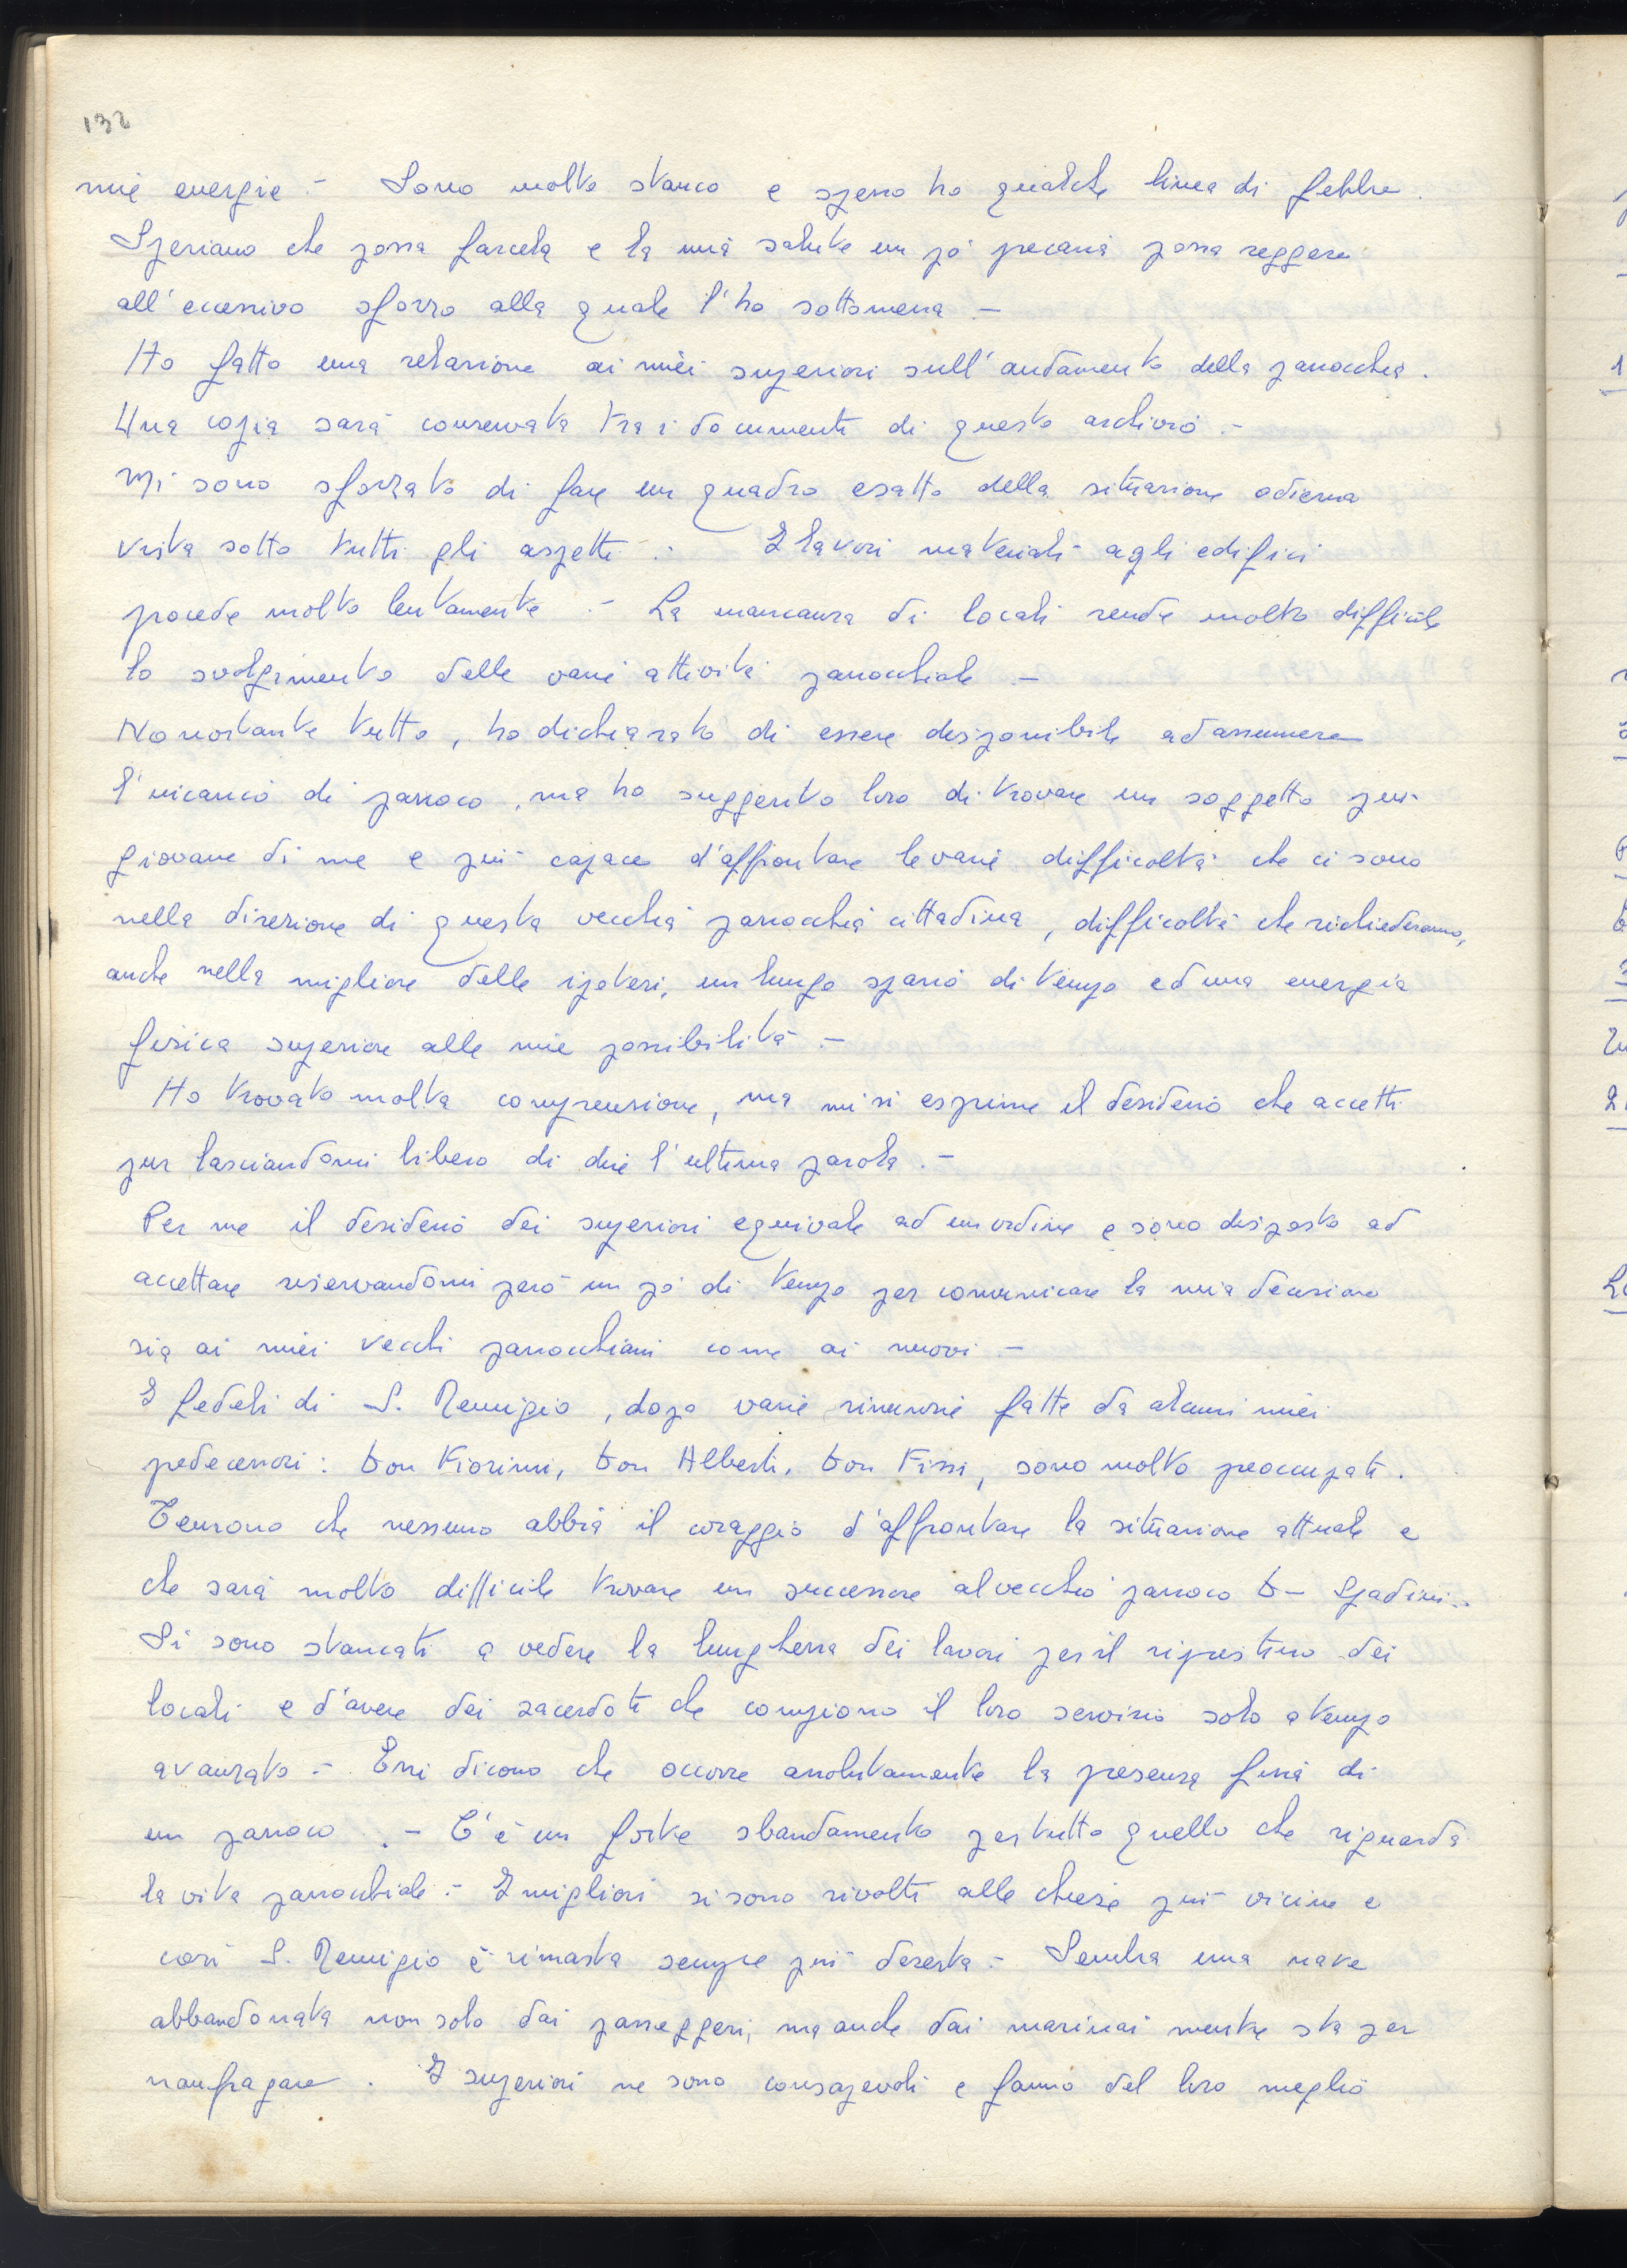 132
mie energie.- Sono molto stanco e spesso ho qualche linea di febbre.
Speriamo che possa farcela e la mia salute un pò precaria possa reggere
all'eccessivo sforzo alla quale l'ho sottomessa -
Ho fatto una relazione ai miei superiori sull'andamento della parrocchia.
Una copia sarà conservata tra i documenti di questo archivio.-
Mi sono sforzato di fare un quadro esatto della situazione odierna
vista sotto tutti gli aspetti.- I lavori materiali agli edifici
procede molto lentamente.- La mancanza di locali rende molto difficile
lo svolgimento delle varie attività parrocchiale -
Nonostante tutto, ho dichiarato di essere disponibile ad assumere
l'incarico di parroco, ma ho suggerito loro di trovare un soggetto più
giovane di me e più capace d'affrontare le varie difficoltà che ci sono
nella direzione di questa vecchia parrocchia cittadina, difficoltà che richiederanno,
anche nella migliore delle ipotesi, un lungo spazio di tempo ed una energia
fisica superiore alle mie possibilità.-
Ho trovato molta comprensione, ma mi si esprime il desiderio che accetti
pur lasciandomi libero di dire l'ultima parola.-
Per me il desiderio dei superiori equivale ad un ordine e sono disposto ad
accettare riservandomi però un pò di tempo per comunicare la mia decisione
sia ai miei vecchi parrocchiani come ai nuovi -
I fedeli di S. Remigio, dopo varie rinunzie fatte da alcuni miei
predecessori: Don Fiorini, Don Alberti, Don Fissi, sono molto preoccupati.
Temono che nessuno abbia il coraggio d'affrontare la situazione attuale e
che sarà molto difficile trovare un successore al vecchio parroco D- Spadini.-
Si sono stancati a vedere la lunghezza dei lavori per il ripristino dei
locali e d'avere dei sacerdoti che compiono il loro servizio solo a tempo
avanzato.- Essi dicono che occorre assolutamente la presenza fissa di
un parroco.- C'è un forte sbandamento per tutto quello che riguarda
la vita parrocchiale.- I migliori si sono rivolti alle chiese più vicine e
così S. Remigio è rimasta sempre più deserta.- Sembra una nave
abbandonata non solo dai passeggeri, ma anche dai marinai mentre sta per
naufragare. I superiori ne sono consapevoli e fanno del loro meglio